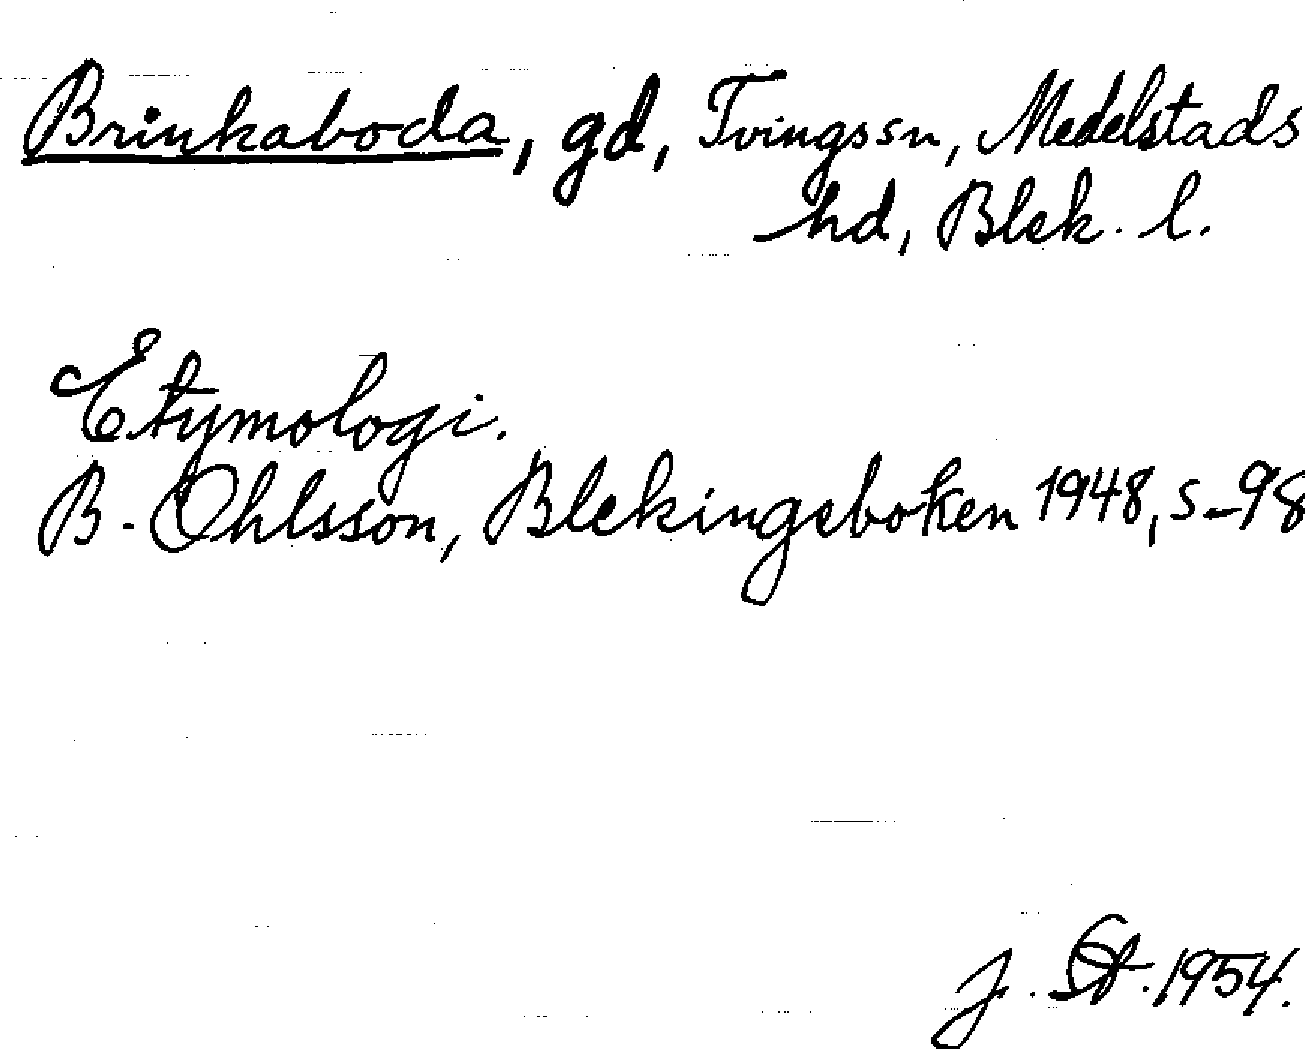 Brinkaboda, gd, Tvings sn, Medelstads
hd, Blek. l.
Etymologi.
B. Ohlsson, Blekingeboken 1948, s. 98
J. St. 1954.